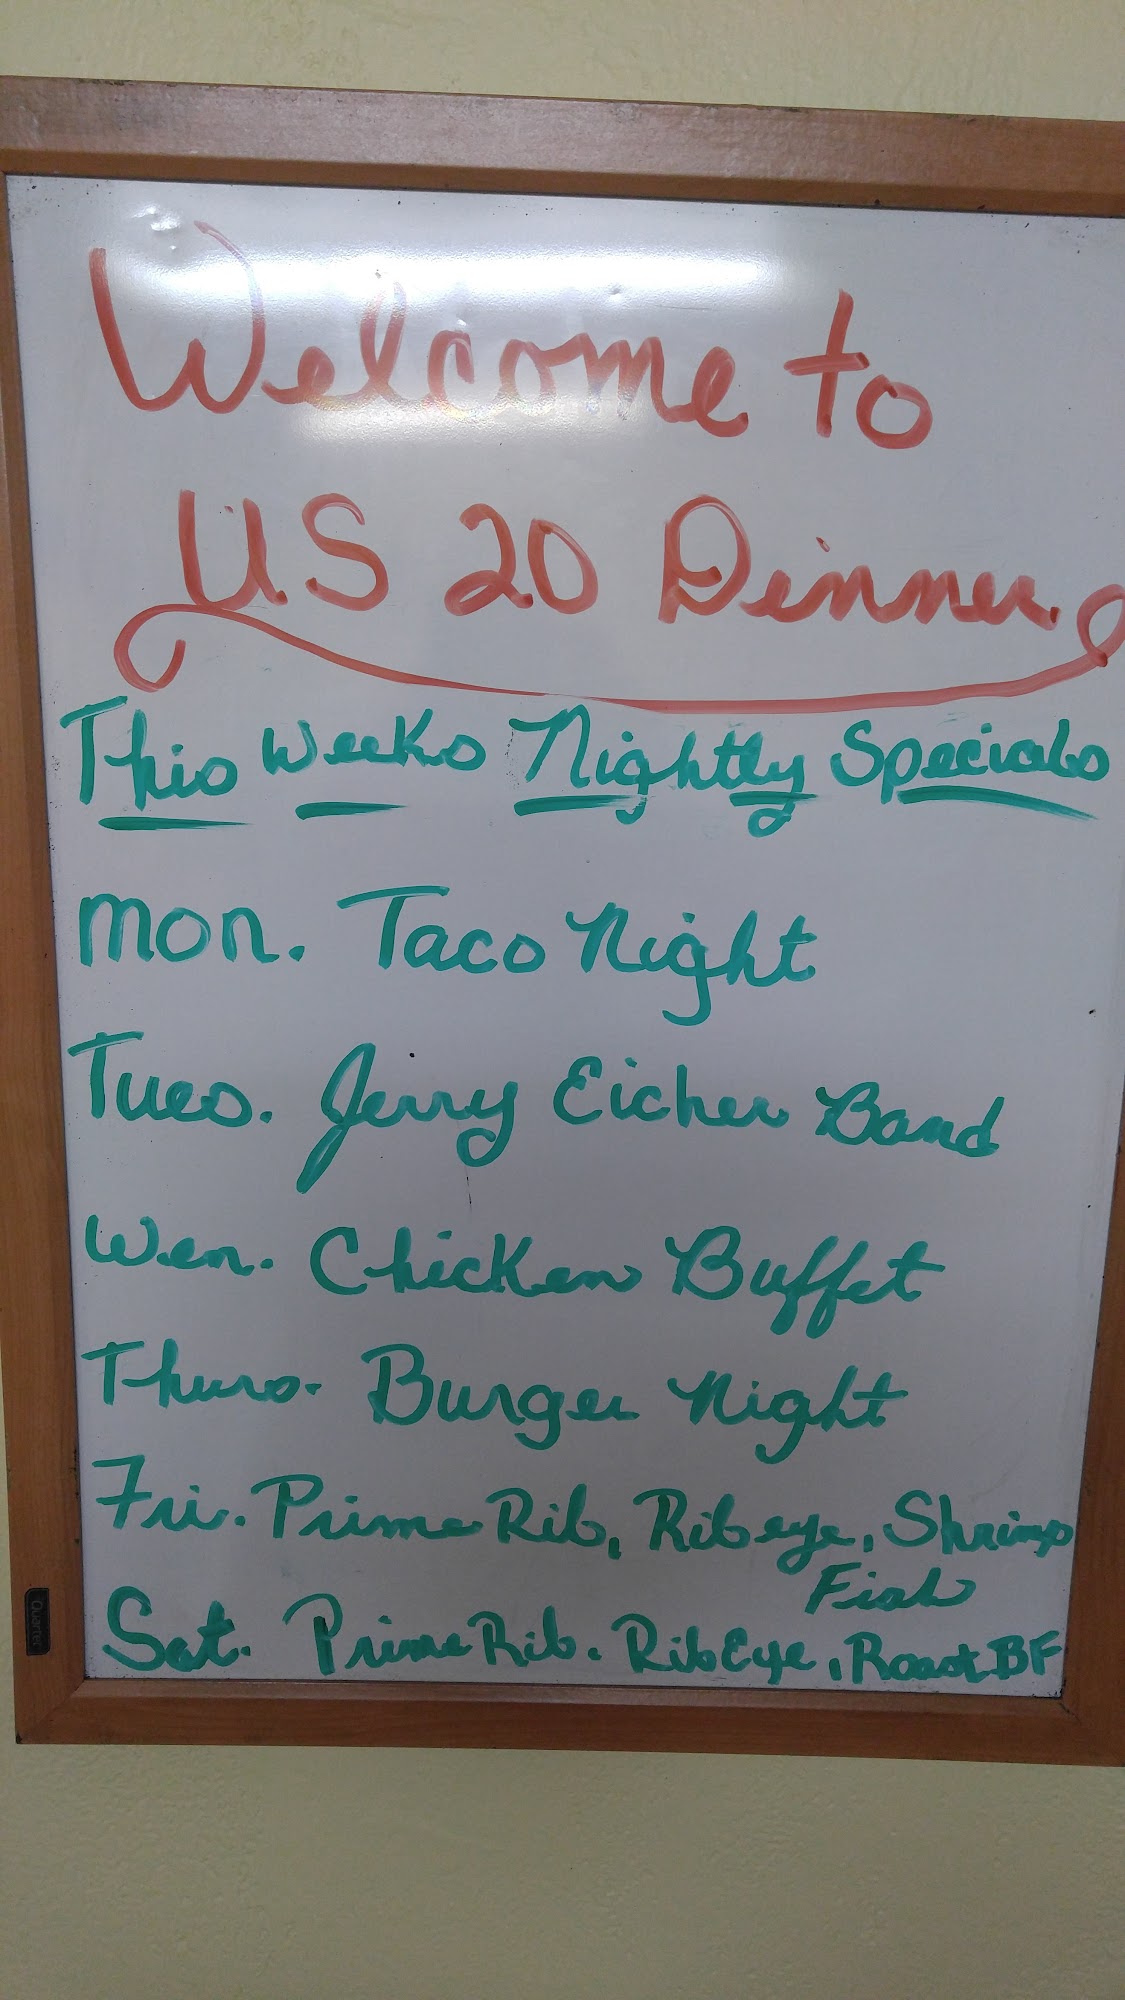 Welcome to
US 20 Dinner
This Weeks Nightly Specials
Mon. Taco Night
Tues. Jerry Eicher Band
Wen. Chicken Buffet
Thurs. Burger Night
Fri. Prime Rib, Rib eye, Shrimp
Fish
Sat. Prime Rib. Rib Eye, Roast BF
Quartet